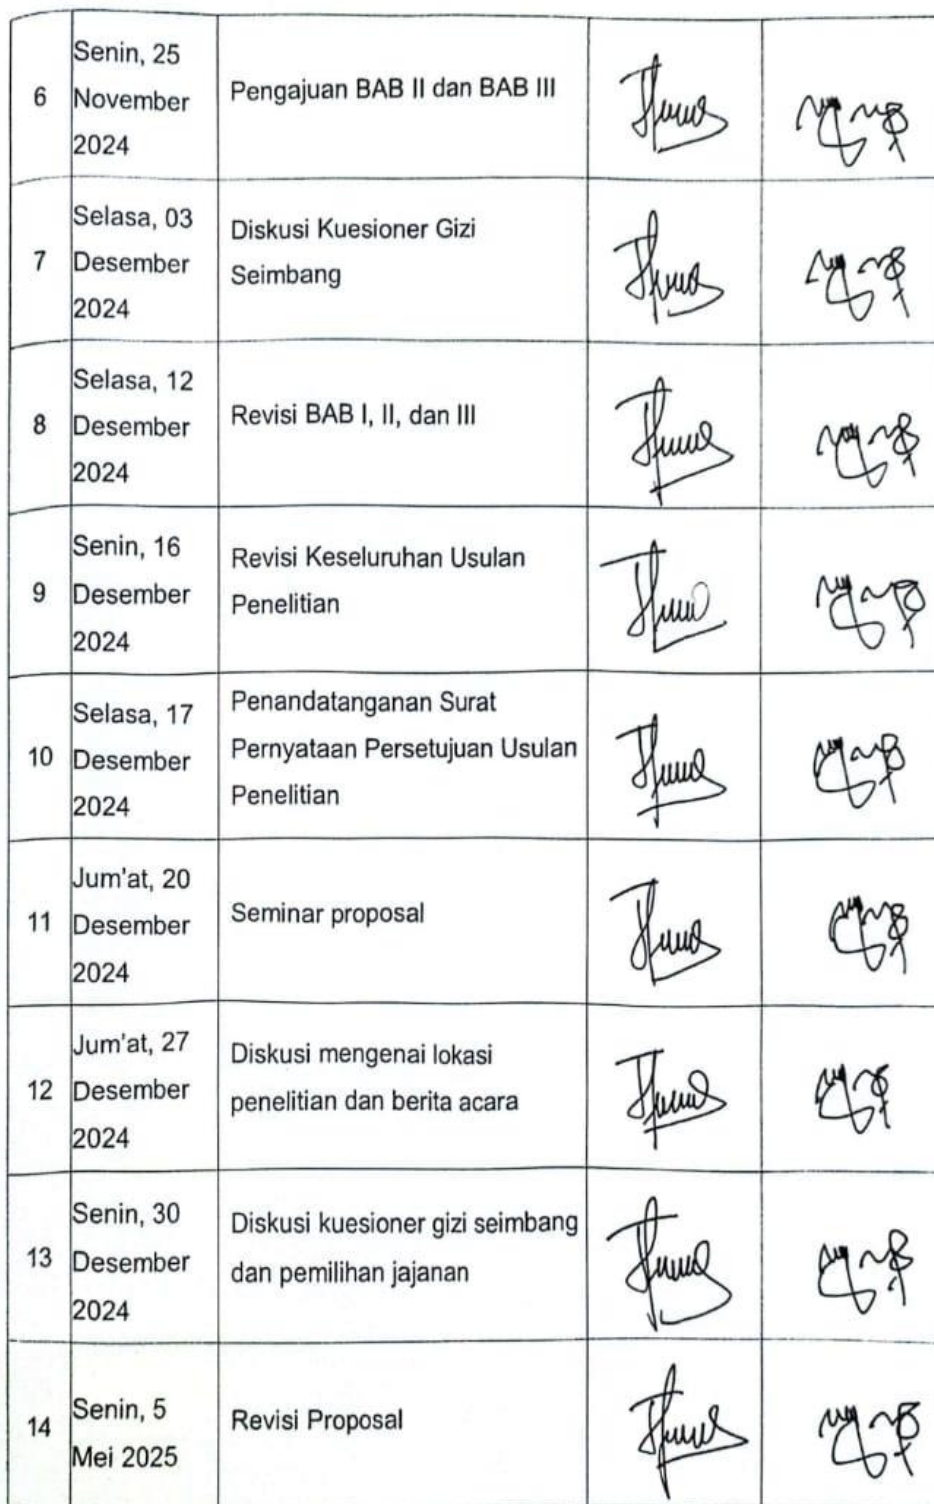 6
Senin, 25
November
2024
Pengajuan BAB II dan BAB III
7
Selasa, 03
Desember
2024
Diskusi Kuesioner Gizi
Seimbang
8
Selasa, 12
Desember
2024
Revisi BAB I, II, dan III
9
Senin, 16
Desember
2024
Revisi Keseluruhan Usulan
Penelitian
10
Selasa, 17
Desember
2024
Penandatanganan Surat
Pernyataan Persetujuan Usulan
Penelitian
11
Jum'at, 20
Desember
2024
Seminar proposal
12
Jum'at, 27
Desember
2024
Diskusi mengenai lokasi
penelitian dan berita acara
13
Senin, 30
Desember
2024
Diskusi kuesioner gizi seimbang
dan pemilihan jajanan
14
Senin, 5
Mei 2025
Revisi Proposal